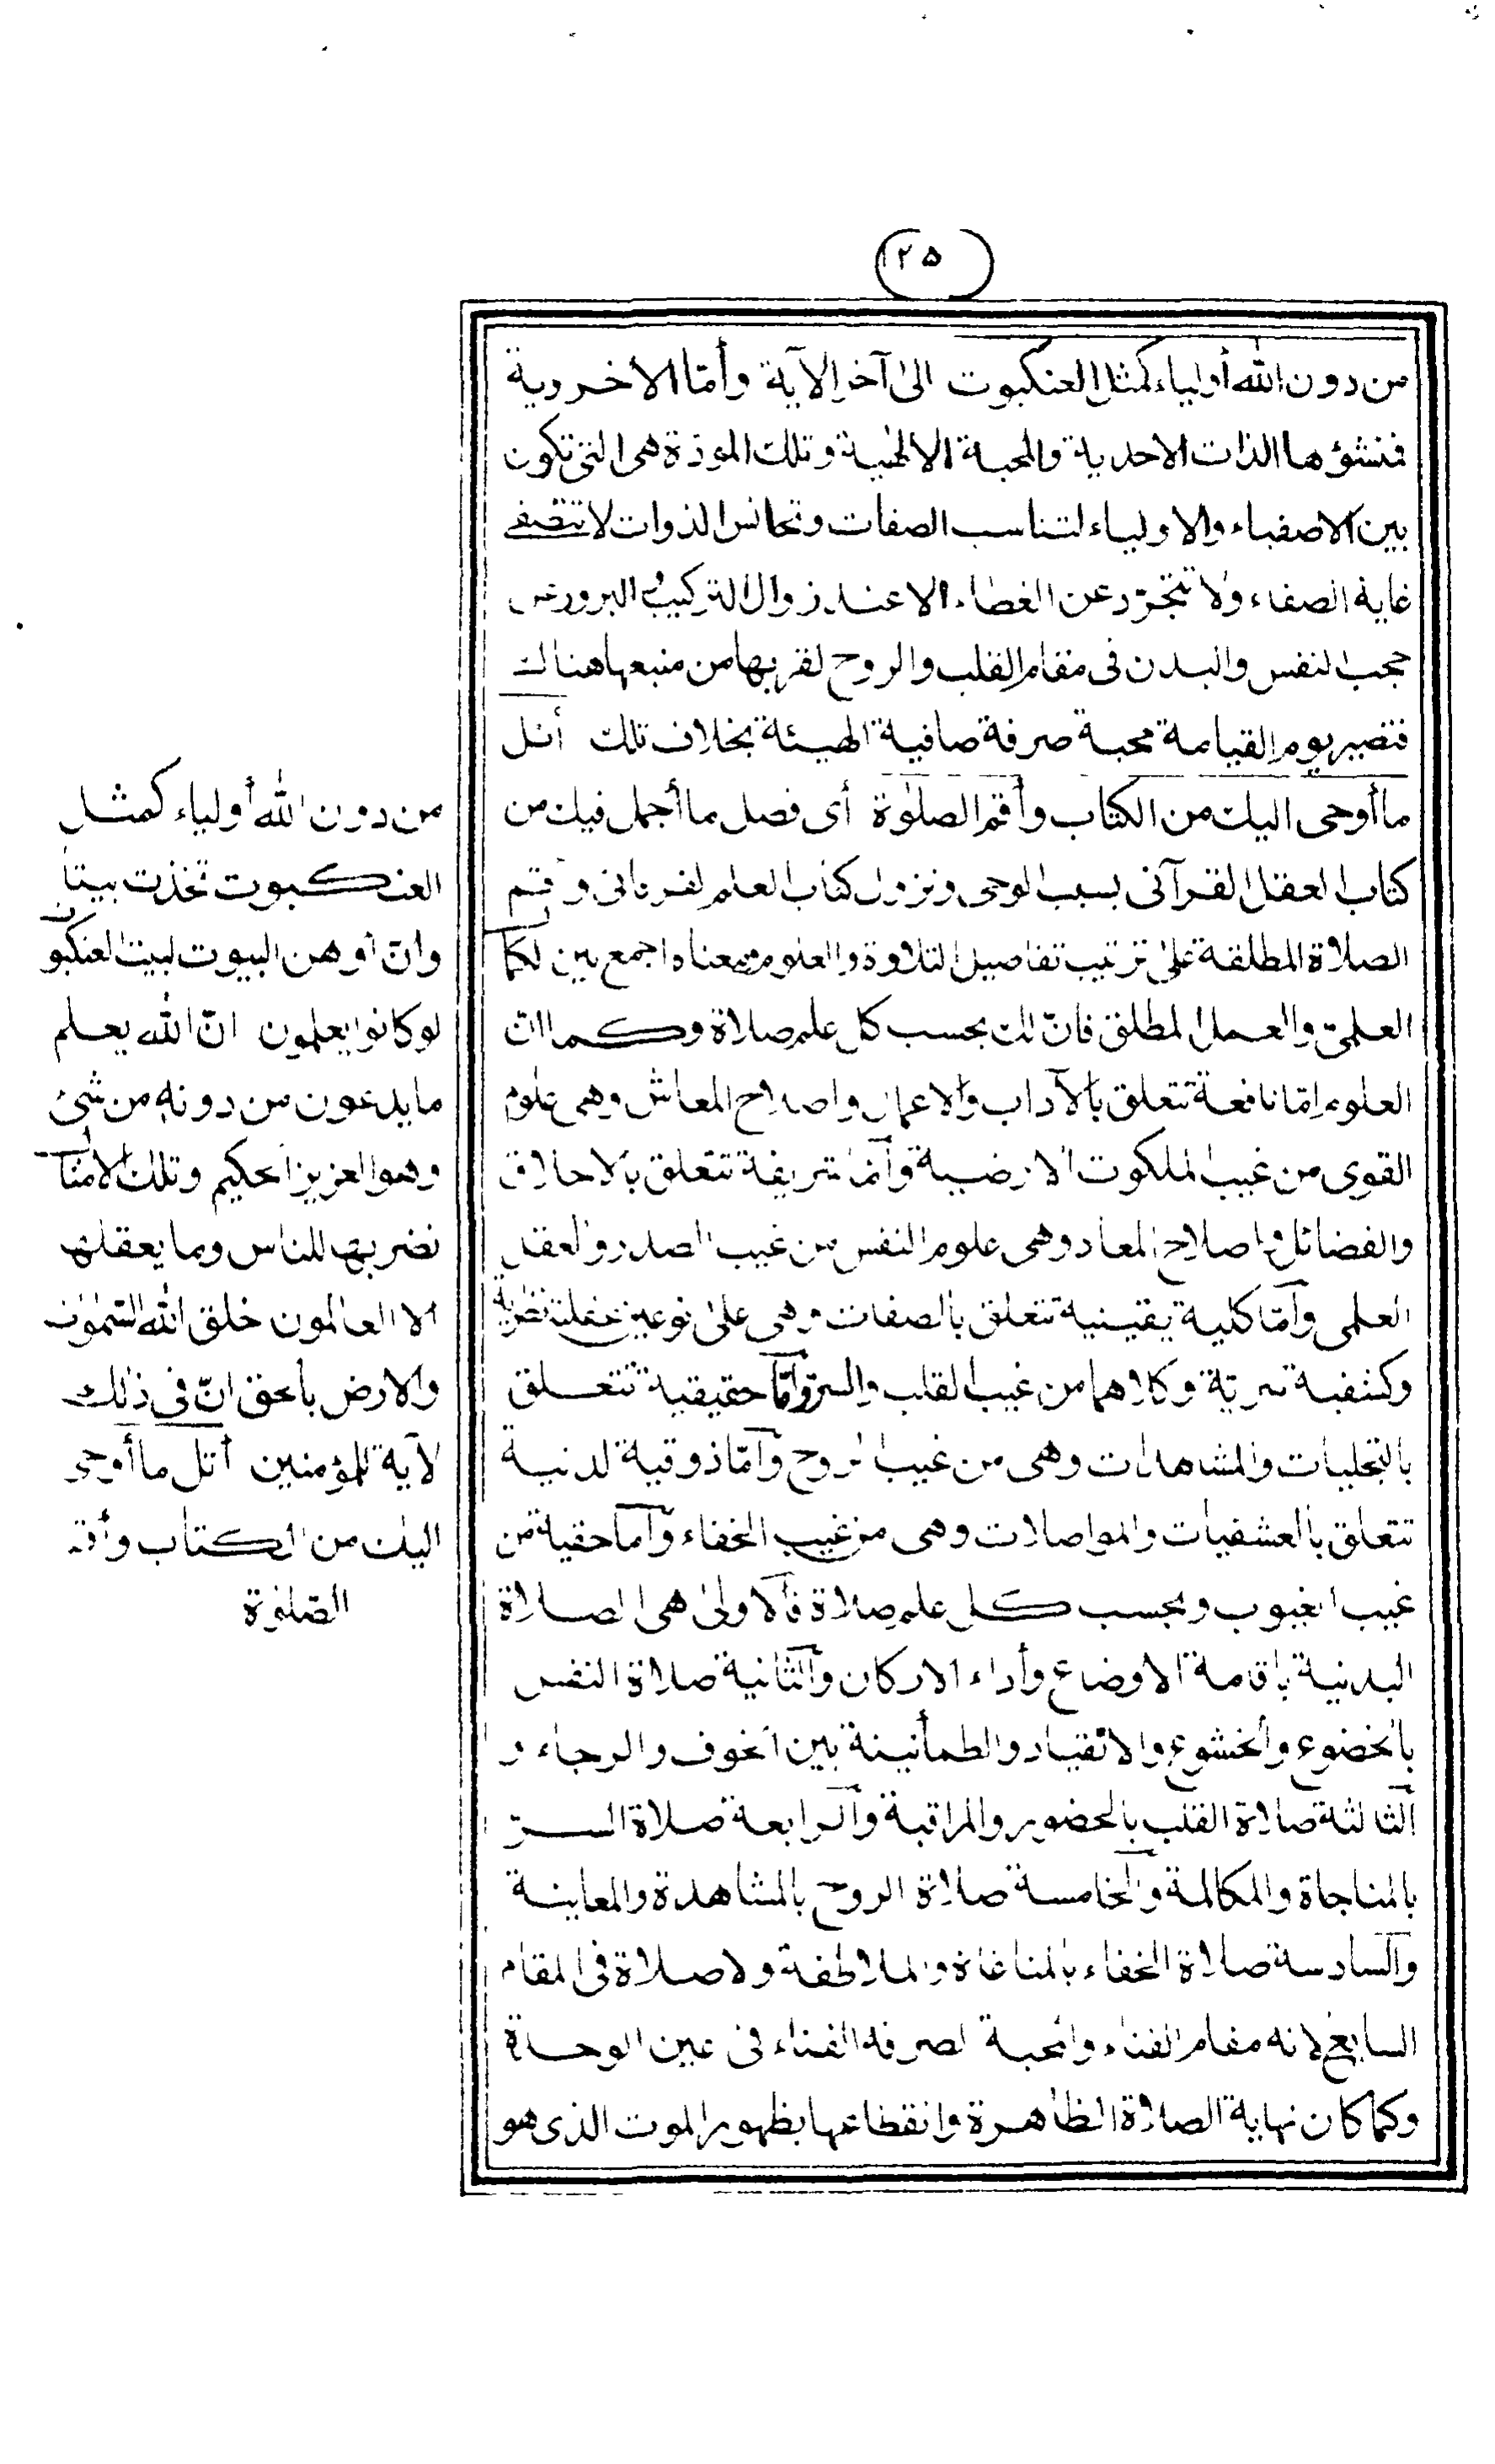 ١٢٥
من دون الله أولياء كمثل العنكبوت الى آخر الآية وأمّا الاخروية
فمنشؤها الذات الاحدية والمحبة الالهية وتلك المودّة هى التى تكون
بين الاصفياء والاولياء لتناسب الصفات وتجانس الذوات لا تتصفى
غاية الصفاء ولا تتجرّد عن الغطاء الا عند زوال التركيب والبروز عن
حجب النفس والبدن فى مقام القلب والروح لقربها من منبعها هنالك
فتصير يوم القيامة محبة صرفة صافية الهيئة بخلاف تلك أتل
ما أوحى اليك من الكتاب وأقم الصلوة أى فصل ما أجمل فيك من
كتاب العقل القرآنى بسبب الوحى ونزول كتاب العلم الفرقانى وأقم
الصلاة المطلقة على ترتيب تفاصيل التلاوة والعلوم ومعناه اجمع بين الكمال
العلمىّ والعمل المطلق فانّ لك بحسب كل علم صلاة وكما انّ
العلوم امّا نافعة تتعلق بالآداب والاعمال واصلاح المعاش وهى علوم
القوى من غيب الملكوت الارضية وأمّا شريفة تتعلق بالاخلاق
والفضائل واصلاح المعاد وهى علوم النفس من غيب الصدر والعقل
العلمى وأمّا كلية يقينية تتعلق بالصفات وهى على نوعين عقلية نظرية
وكشفية سريّة وكلاهما من غيب القلب والسرّ وأمّا حقيقية تتعلق
بالتجليات والمشاهدات وهى من غيب الروح وأمّا ذوقية لدنية
تتعلق بالعشقيات والمواصلات وهى من غيب الخفاء وأما حقية من
غيب الغيوب وبحسب كل علم صلاة فالاولى هى الصلاة
البدنية باقامة الاوضاع وأداء الاركان والثانية صلاة النفس
بالخضوع والخشوع والانقياد والطمأنينة بين الخوف والرجاء و
الثالثة صلاة القلب بالحضور والمراقبة والرابعة صلاة السرّ
بالمناجاة والمكالمة والخامسة صلاة الروح بالمشاهدة والمعاينة
والسادسة صلاة الخفاء بالمناغاة والملاطفة ولا صلاة فى المقام
السابع لانه مقام الفناء والمحبة الصرفة الفناء فى عين الوحدة
وكما كان نهاية الصلاة الظاهرة وانقطاعها بظهور الموت الذى هو
من دون الله أولياء كمثل
العنكبوت تخذت بيتا
وانّ أوهن البيوت لبيت العنكبوت
لو كانوا يعلمون انّ الله يعلم
ما يدعون من دونه من شئ
وهو العزيز الحكيم وتلك الامثال
نضربها للناس وما يعقلها
الا العالمون خلق الله السموات
والارض بالحق انّ فى ذلك
لآية للمؤمنين أتل ما أوحى
اليك من الكتاب وأقم
الصّلوة